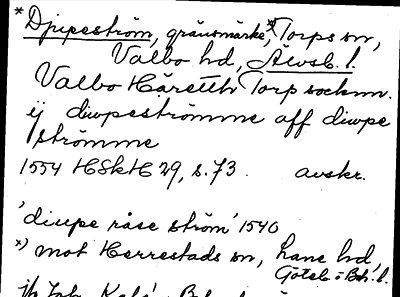 *Djupeström, gränsmärke,*) Torps sn,
Valbo hd, Älvsb. l.
Valbo Häretth Torp socknn.
ij diwpeströmme aff diwpe
strömme
1554 HSkH 29, s. 73. avskr.
'diupe råse ström' 1540
*) mot Herrestads sn, Lane hd,
Göteb o Boh. l.